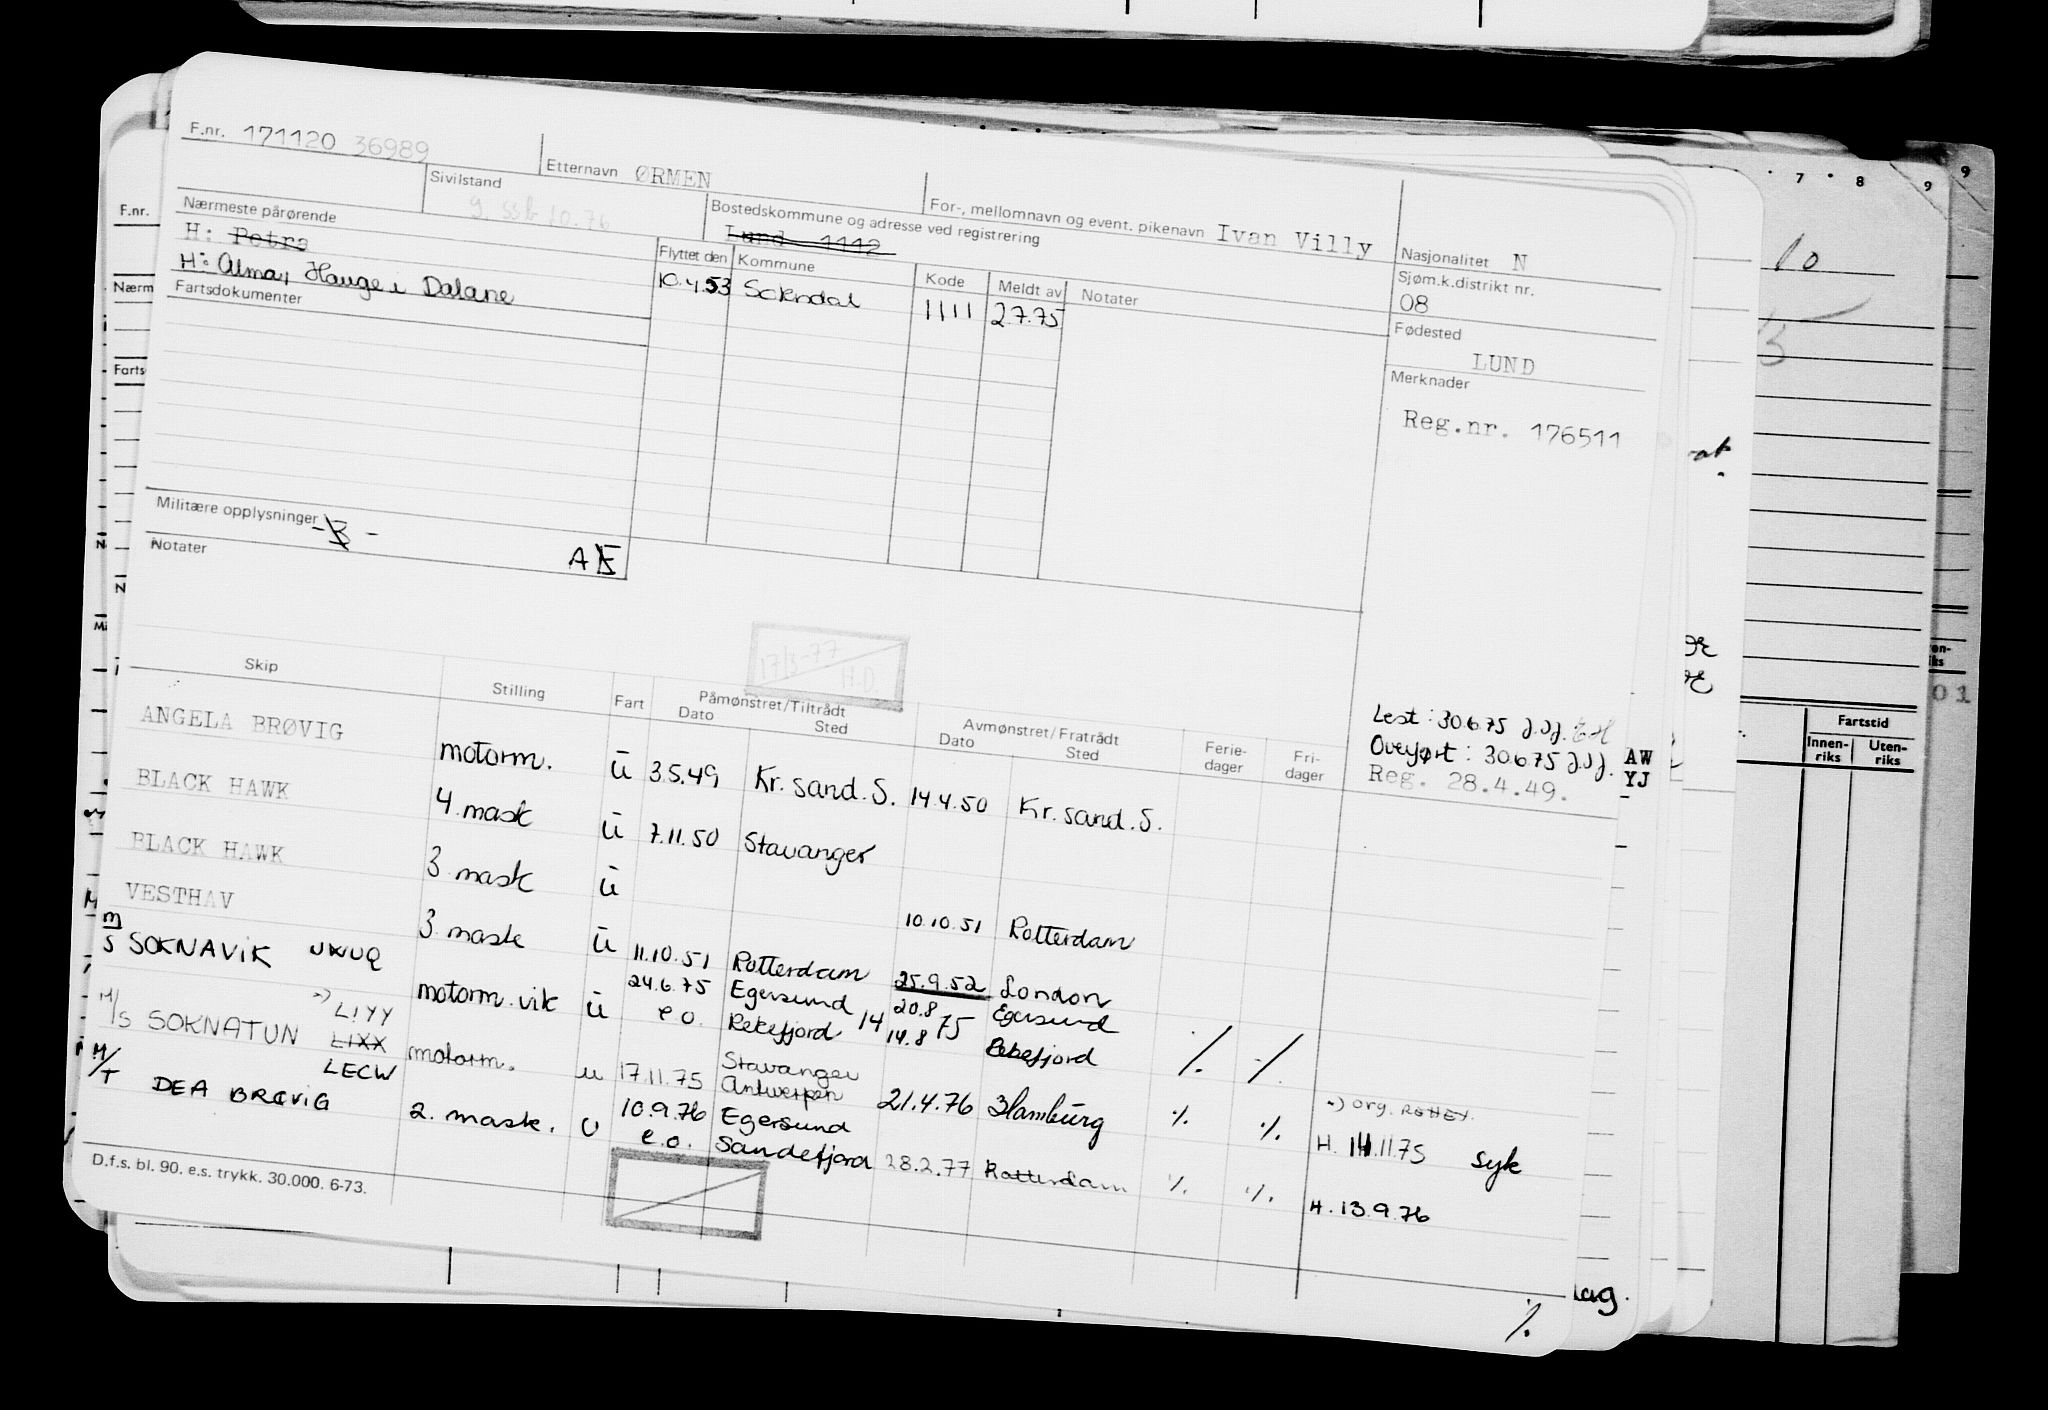 F.nr. 171120 36989
Etternavn ØRMEN
For-, mellomnavn og event. pikenavn Ivan Villy
Nasjonalitet N
Sivilstand g. ssb 10.76
Bostedskommune og adresse ved registrering
Lund 1112
Sjøm.k.distrikt nr.
08
Nærmeste pårørende
H: Petra
H: Alma, Hauge i Dalane
Flyttet den Kommune Kode Meldt av Notater
10.4.53 Sokndal 1111 2.7.75
Fødested
LUND
Fartsdokumenter
Merknader
Reg.nr. 176511
Militære opplysninger
Notater
17/3-77
H.D.
Lest: 30.6.75
Overført: 30.6.75
Reg. 28.4.49.
Skip Stilling Fart Påmønstret/Tiltrådt Dato Sted Avmønstret/Fratrådt Dato Sted Ferie-dager Fri-dager
ANGELA BRØVIG motorm. u 3.5.49 Kr.sand.S. 14.4.50 Kr.sand.S.
BLACK HAWK 4.mask u 7.11.50 Stavanger
BLACK HAWK 3.mask u 10.10.51 Rotterdam
VESTHAV 3.mask u 11.10.51 Rotterdam 25.9.52 London
M/S SOKNAVIK motorm.vik u 24.6.75 Egersund 20.8 Egersund
e.o. Rekefjord 14 14.8 75 Rekefjord ./. ./.
M/S SOKNATUN LIYY LIXX motorm. u 17.11.75 Stavanger Antwerpen 21.4.76 Hamburg ./. ./. H. 14.11.75 syk
M/T DEA BRØVIG LECW 2. mask. u 10.9.76 Egersund
e.o. Sandefjord 28.2.77 Rotterdam ./. ./. H. 13.9.76
D.f.s. bl. 90. e.s. trykk. 30.000. 6-73.
./.
F.nr.
Nærm
Farts
AW
YJ
Fartstid
Innen-riks Uten-riks
7 8 9 9
10
01